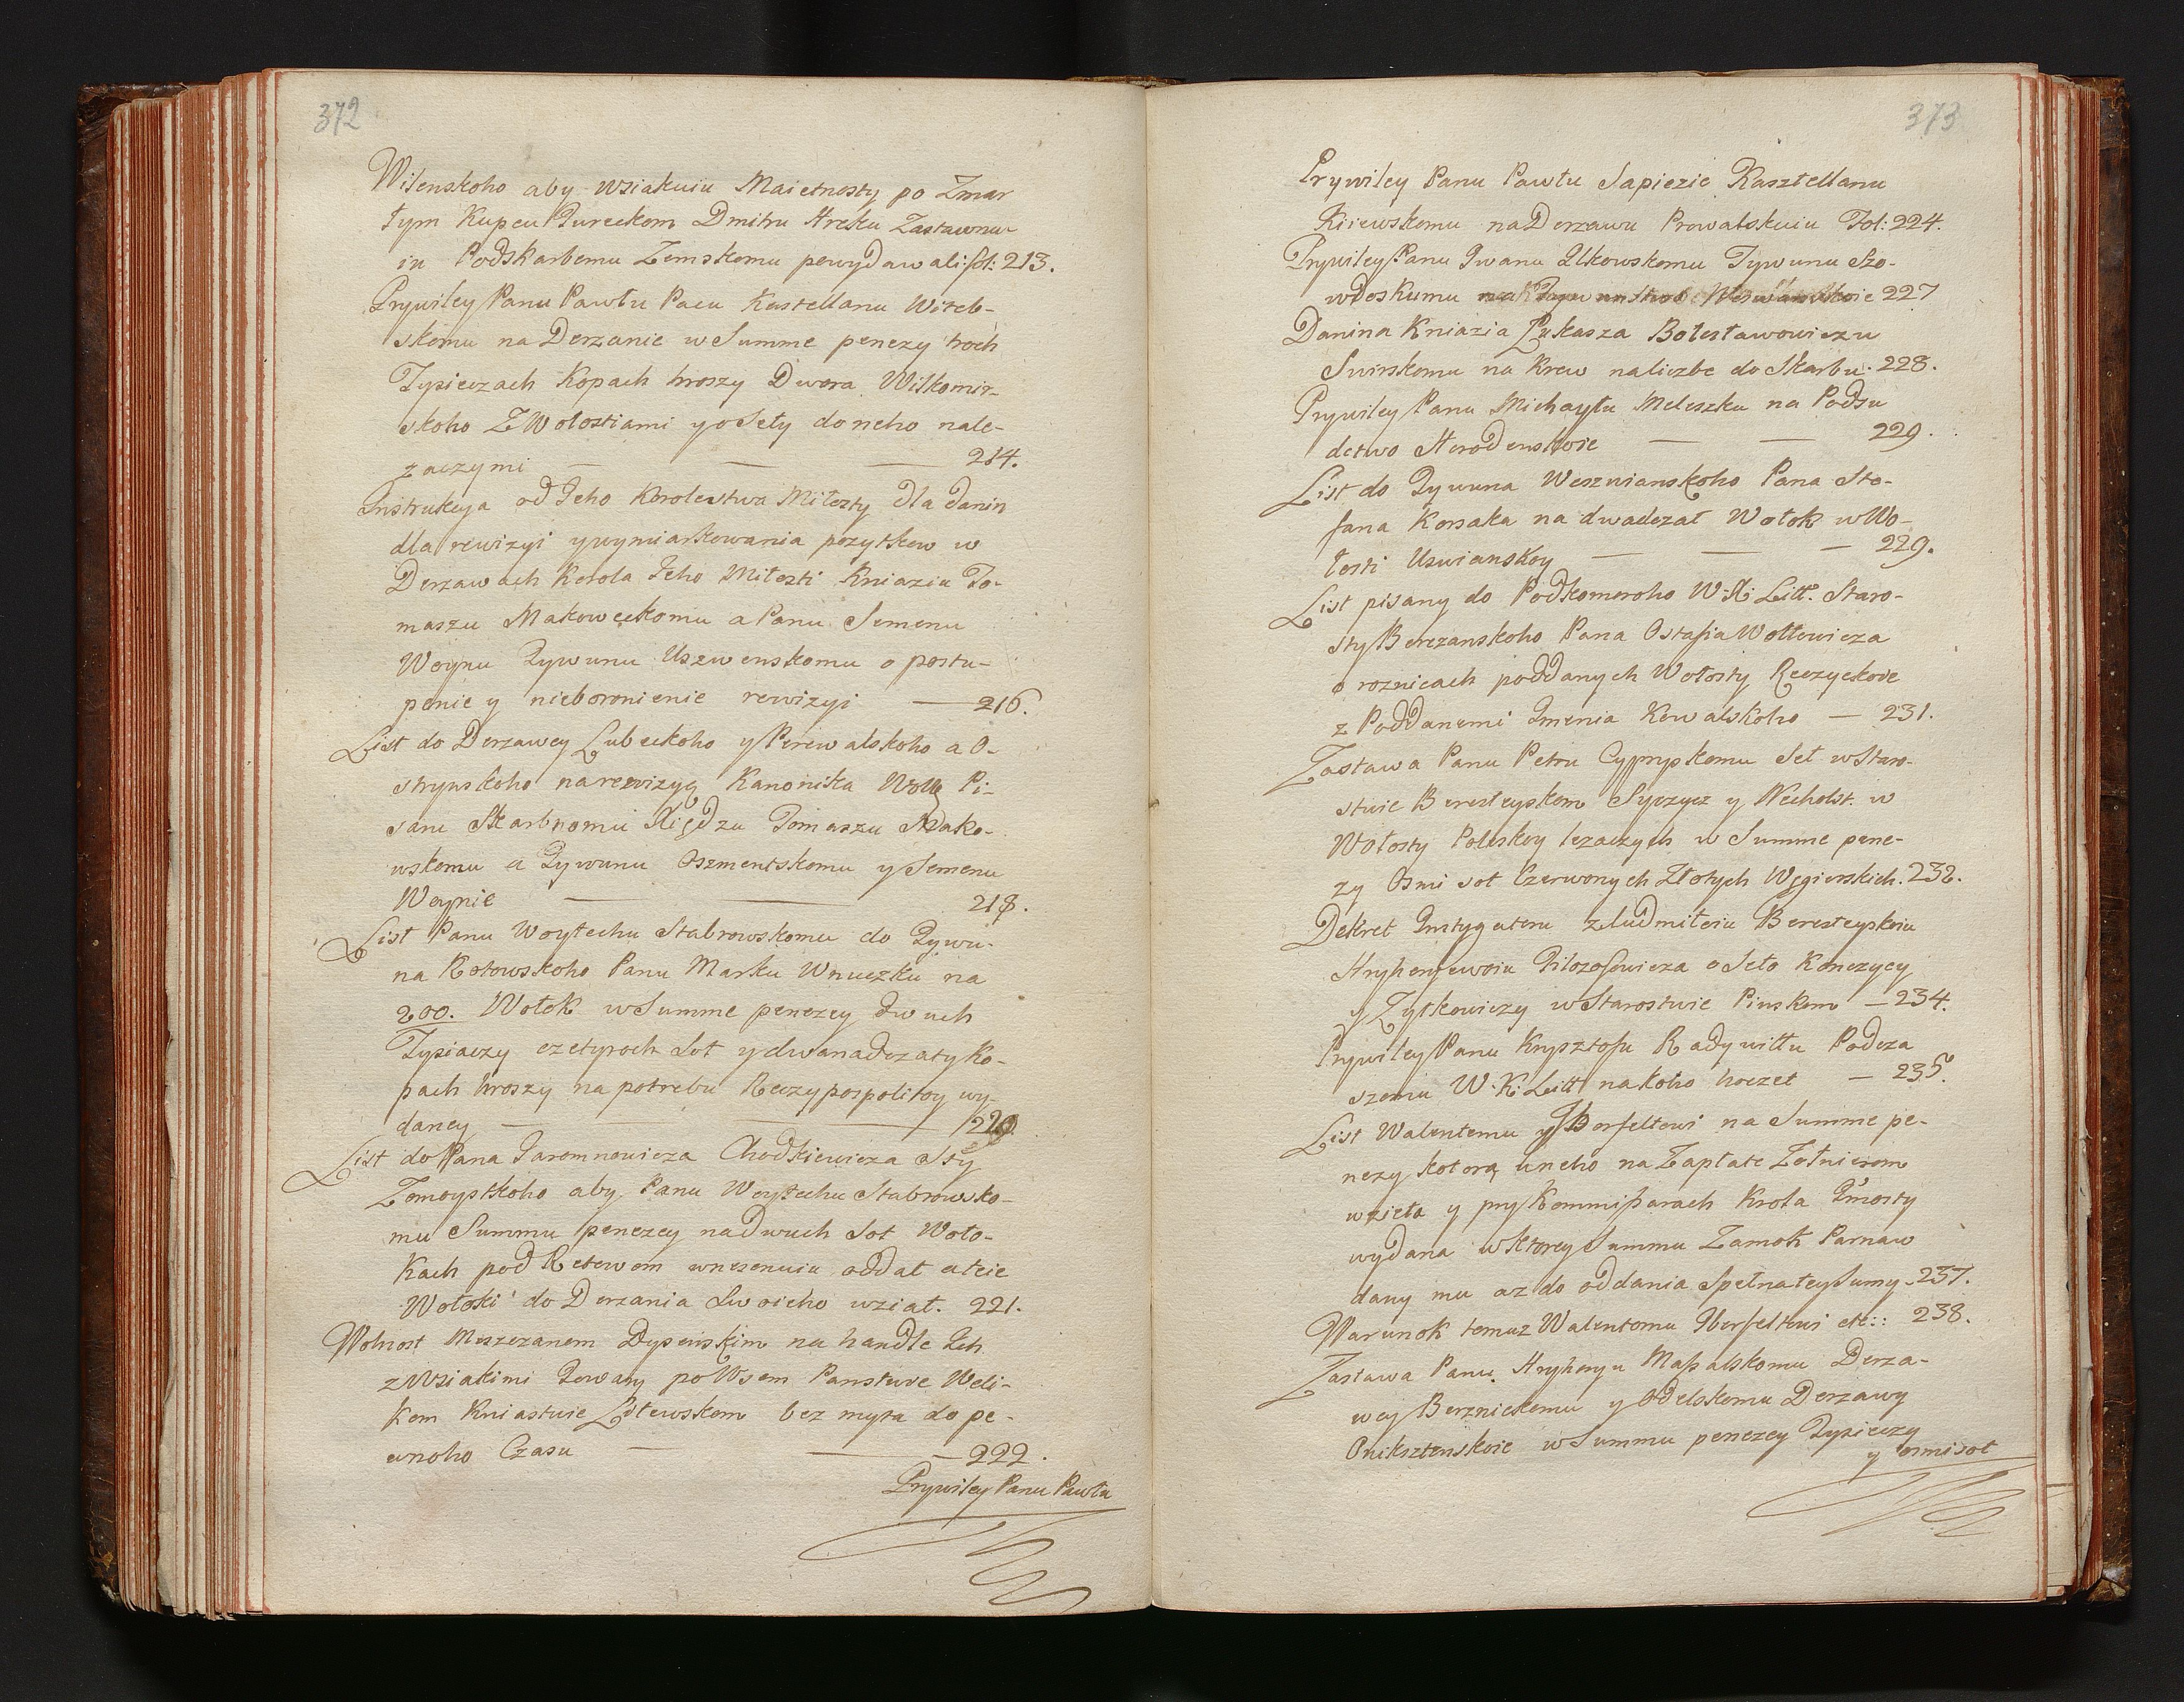 372
Wilenskoho aby wsiakuiu Maietnosty po Zmar
łym Kupcu Tureckom Dmitru Hreku Zastawnu
iu Podskarbemu Zemskomu powydawali: fol: 213.
Prywiley Panu Pawłu Pacu Kastellanu Witeb-
skomu na Derzanie w Summe penezy troch
Tysieczach Kopach hroszy Dwora Wilkomir-
skoho Z Wołostiami y o Seły do neho nale-
zaczymi — — — 214.
Instrukcya od Jeho Korolestwa Miłosty dla danin
dla rewizyi y wymiarkowania pozytkow w
Derzawach Korola Jeho Miłosti Kniaziu To-
maszu Makoweckomu a Panu Semenu
Woynu Tywunu Uszwenskomu o postu-
penie y nieboronienie rewizyi — 216.
List do Derzawcy Lubeckoho y Perewalskoho a O-
strynskoho na rewizyą Kanonika Woll Pi-
saru Skarbnomu Xiędzu Tomaszu Mako-
wskomu a Tywunu Oszmentskomu y Semenu
Woynie — — 218.
List Panu Woytechu Stabrowskomu do Tywu-
na Rotowskoho Panu Marku Wnuczku na
200. Wołok w Summe penezey dwuch
Tysiaczy czetyroch Sot y dwanadczaty Ko-
pach hroszy na potrebu Reczypospolitoy wy-
daney — — 220.
List do Pana Jaromnowicza Chodkiewicza Sty
Zomoytskoho aby Panu Woytechu Stabrowsko-
mu Summu penezey na Dwuch Sot Woło-
Kach pod Retowom wnesenuiu oddał a teie
Wołoki do Derzania Swoieho wział. 221.
Wolnost Meszczanom Dysenskim na handle Ich
z Wsiakimi Towary po Wsem Panstwie Weli-
kom Kniastwie Litewskom bez myta do pe-
wnoho Czasu — — — 222.
Prywiley Panu Pawłu
373
Prywiley Panu Pawłu Sapiezie Kasztellanu
Kiiewskomu na Derzawu Prowalskuiu Fol: 224.
Prywiley Panu Iwanu Ilkowskomu Tywunu Szo-
wdoskumu na Tywunstwo 227
Danina Kniazia Łukasza Bolesławowiczu
Swirskomu na Krew na liczbe do Skarbu. 228.
Prywiley Panu Michayłu Meleszku na Podsu
detwo Horodenskoie — — 229.
List do Tywuna Weszwianskoho Pana Sto-
fana Korsaka na dwadczat Wołok w Wo-
łosti Uswianskoy — — — 229.
List pisany do Podkomoroho W: X: Litt. Staro-
sty Berezanskoho Pana Ostafia Wołłowicza
o roznicach poddanych Wołosty Reczyckoie
z Poddanemi Imenia Kowalskoho — 231.
Zastawa Panu Petru Cyprypskomu Seł w Staro-
stwie Beresteyskom Syczycz y Wecholst. w
Wołosty Poleskoy lezaczych w Summe pene-
zy Osmi sot Czerwonych Złotych Węgierskich. 232.
Dekret Instygatoru z Ludmiłoiu Beresteyskoiu
Hryhorjewoiu Filozofowicza o Seło Konczycy
y Zytkowiczy w Starostwie Pinskom — 234.
Prywiley Panu Krysztofu Radywiłłu Podcza
szomu W. K. Litt na koho hoczet — 235.
List Walentemu Yberfeltowi na Summe pe-
nezy kotorą u neho na Zapłate Zołnierom
wzieta y pry Kommissarach Krola Jmosty
wydana w ktorey Summu Zamok Parnaw
dany mu az do oddania Spełna tey Sumy. 237.
Warunok temuz Walentomu Yberfeltowi etc:: 238.
Zastawa Panu Hryhoryu Massalskomu Derza-
wcy Berznickomu y Odelskomu Derzawy
Onikszтenskoie w Summu penezey Tysieczy
y osmisot